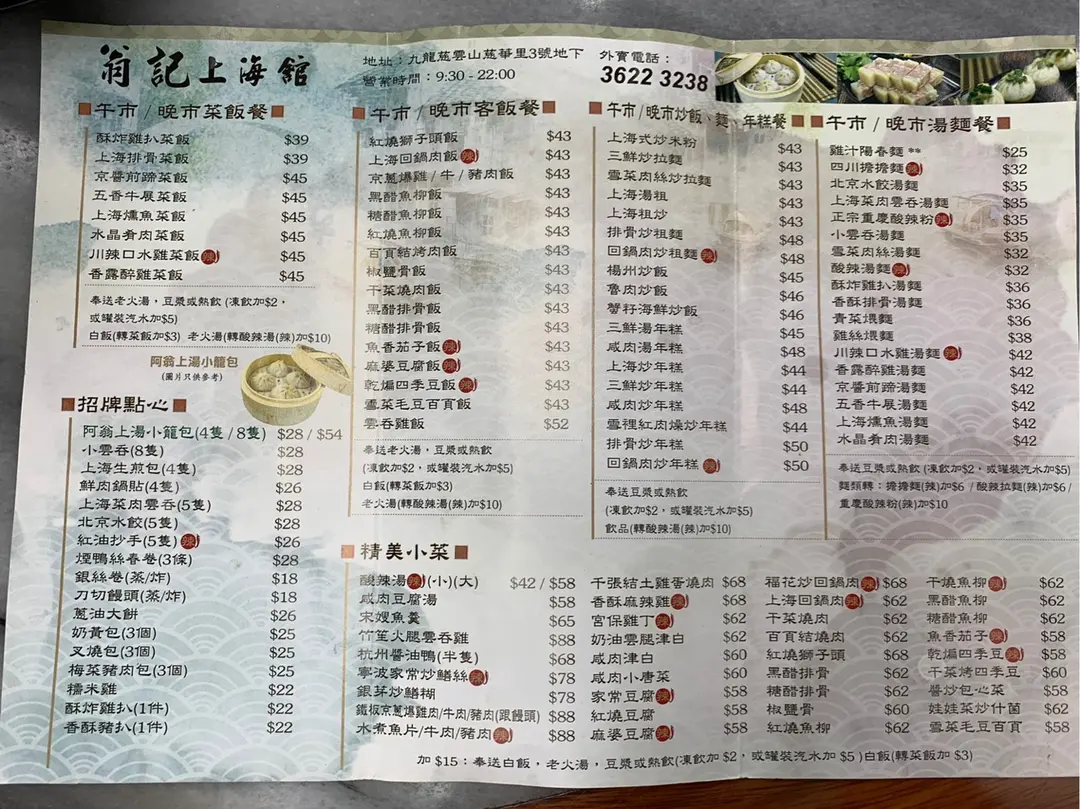 翁記上海館
地址：九龍慈雲山慈華里3號地下
營業時間：9:30 - 22:00
外賣電話：
3622 3238
午市 / 晚市菜飯餐
酥炸雞扒菜飯 $39
上海排骨菜飯 $39
京醬前蹄菜飯 $45
五香牛展菜飯 $45
上海燻魚菜飯 $45
水晶肴肉菜飯 $45
川辣口水雞菜飯(辣) $45
香露醉雞菜飯 $45
奉送老火湯，豆漿或熱飲 (凍飲加$2，
或罐裝汽水加$5)
白飯(轉菜飯加$3) 老火湯(轉酸辣湯(辣)加$10)
阿翁上湯小籠包
(圖片只供參考)
招牌點心
阿翁上湯小籠包(4隻 / 8隻) $28 / $54
小雲吞(8隻) $28
上海生煎包(4隻) $28
鮮肉鍋貼(4隻) $26
上海菜肉雲吞(5隻) $28
北京水餃(5隻) $28
紅油抄手(5隻)(辣) $26
煙鴨絲春卷(3條) $28
銀絲卷(蒸/炸) $18
刀切饅頭(蒸/炸) $18
蔥油大餅 $26
奶黃包(3個) $25
叉燒包(3個) $25
梅菜豬肉包(3個) $25
糯米雞 $22
酥炸雞扒(1件) $22
香酥豬扒(1件) $22
午市 / 晚市客飯餐
紅燒獅子頭飯 $43
上海回鍋肉飯(辣) $43
京蔥爆雞 / 牛 / 豬肉飯 $43
黑醋魚柳飯 $43
糖醋魚柳飯 $43
紅燒魚柳飯 $43
百頁結烤肉飯 $43
椒鹽骨飯 $43
干菜燒肉飯 $43
黑醋排骨飯 $43
糖醋排骨飯 $43
魚香茄子飯(辣) $43
麻婆豆腐飯(辣) $43
乾煸四季豆飯(辣) $43
雪菜毛豆百頁飯 $43
雲吞雞飯 $52
奉送老火湯，豆漿或熱飲
(凍飲加$2，或罐裝汽水加$5)
白飯(轉菜飯加$3)
老火湯(轉酸辣湯(辣)加$10)
午市 / 晚市炒飯、麵、年糕餐
上海式炒米粉 $43
三鮮炒拉麵 $43
雪菜肉絲炒拉麵 $43
上海湯粗 $43
上海粗炒 $43
排骨炒粗麵 $48
回鍋肉炒粗麵(辣) $48
楊州炒飯 $45
魯肉炒飯 $46
蟹籽海鮮炒飯 $46
三鮮湯年糕 $45
咸肉湯年糕 $48
上海炒年糕 $44
三鮮炒年糕 $44
咸肉炒年糕 $48
雪裡紅肉燥炒年糕 $44
排骨炒年糕 $50
回鍋肉炒年糕(辣) $50
奉送豆漿或熱飲
(凍飲加$2，或罐裝汽水加$5)
飲品(轉酸辣湯(辣)加$10)
午市 / 晚市湯麵餐
雞汁陽春麵 ** $25
四川擔擔麵(辣) $32
北京水餃湯麵 $35
上海菜肉雲吞湯麵 $35
正宗重慶酸辣粉(辣) $35
小雲吞湯麵 $35
雪菜肉絲湯麵 $32
酸辣湯麵(辣) $32
酥炸雞扒湯麵 $36
香酥排骨湯麵 $36
青菜煨麵 $36
雞絲煨麵 $38
川辣口水雞湯麵(辣) $42
香露醉雞湯麵 $42
京醬前蹄湯麵 $42
五香牛展湯麵 $42
上海燻魚湯麵 $42
水晶肴肉湯麵 $42
奉送豆漿或熱飲 (凍飲加$2，或罐裝汽水加$5)
麵類轉：擔擔麵(辣)加$6 / 酸辣拉麵(辣)加$6 /
重慶酸辣粉(辣)加$10
精美小菜
酸辣湯(辣)(小)(大) $42 / $58
咸肉豆腐湯 $58
宋嫂魚羹 $65
竹笙火腿雲吞雞 $88
杭州醬油鴨(半隻) $68
寧波家常炒鱔絲(辣) $78
銀芽炒鱔糊 $78
鐵板京蔥爆雞肉/牛肉/豬肉(跟饅頭) $88
水煮魚片/牛肉/豬肉(辣) $88
千張結土雞蛋燒肉 $68
香酥麻辣雞(辣) $68
宮保雞丁(辣) $62
奶油雲腿津白 $62
咸肉津白 $60
咸肉小唐菜 $60
家常豆腐(辣) $58
紅燒豆腐 $58
麻婆豆腐(辣) $58
福花炒回鍋肉(辣) $68
上海回鍋肉(辣) $62
干菜燒肉 $62
百頁結燒肉 $62
紅燒獅子頭 $68
黑醋排骨 $62
糖醋排骨 $62
椒鹽骨 $60
紅燒魚柳 $62
干燒魚柳(辣) $62
黑醋魚柳 $62
糖醋魚柳 $62
魚香茄子(辣) $58
乾煸四季豆(辣) $58
干菜烤四季豆 $60
醬炒包心菜 $58
娃娃菜炒什菌 $62
雪菜毛豆百頁 $58
加 $15：奉送白飯，老火湯，豆漿或熱飲(凍飲加 $2，或罐裝汽水加 $5 )白飯(轉菜飯加 $3)